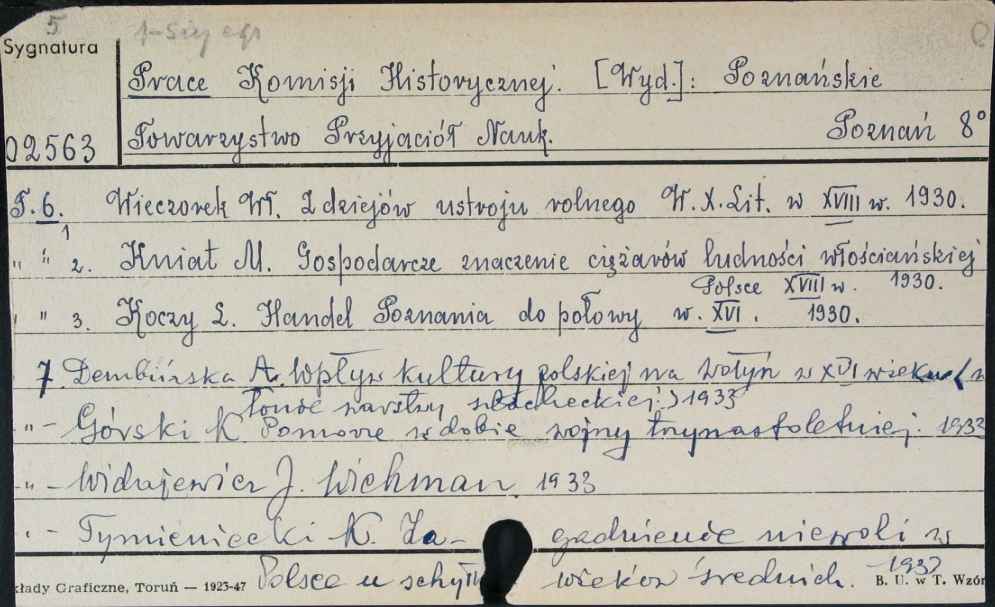 5
Sygnatura
02563
Prace Komisji Historycznej. [Wyd.]: Poznańskie
Towarzystwo Przyjaciół Nauk. Poznań 8°
T. 6. 1 Wieczorek Wł. Z dziejów ustroju rolnego W. X. Lit. w XVIII w. 1930.
" " 2. Kniat M. Gospodarcze znaczenie ciężarów ludności włościańskiej
Polsce XVIII w. 1930.
" " 3. Koczy L. Handel Poznania do połowy w. XVI. 1930.
7 Dembińska A. Wpływ kultury polskiej na Wołyń w XVI wieku (na
łonie warstwy szlacheckiej.) 1933
"- Górski K Pomorze w dobie wojny trzynastoletniej. 1932
"- Widajewicz J. Wichman 1933
"- Tymieniecki K. Za- gadnienie niewoli w
Polsce u schyłku wieków średnich. 1932
kłady Graficzne, Toruń — 1923-47 B. U. w T. Wzór